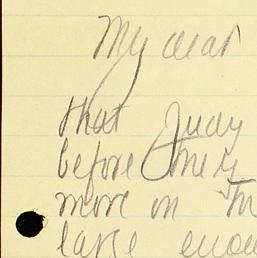 My dear
that Judy
before
more on
large